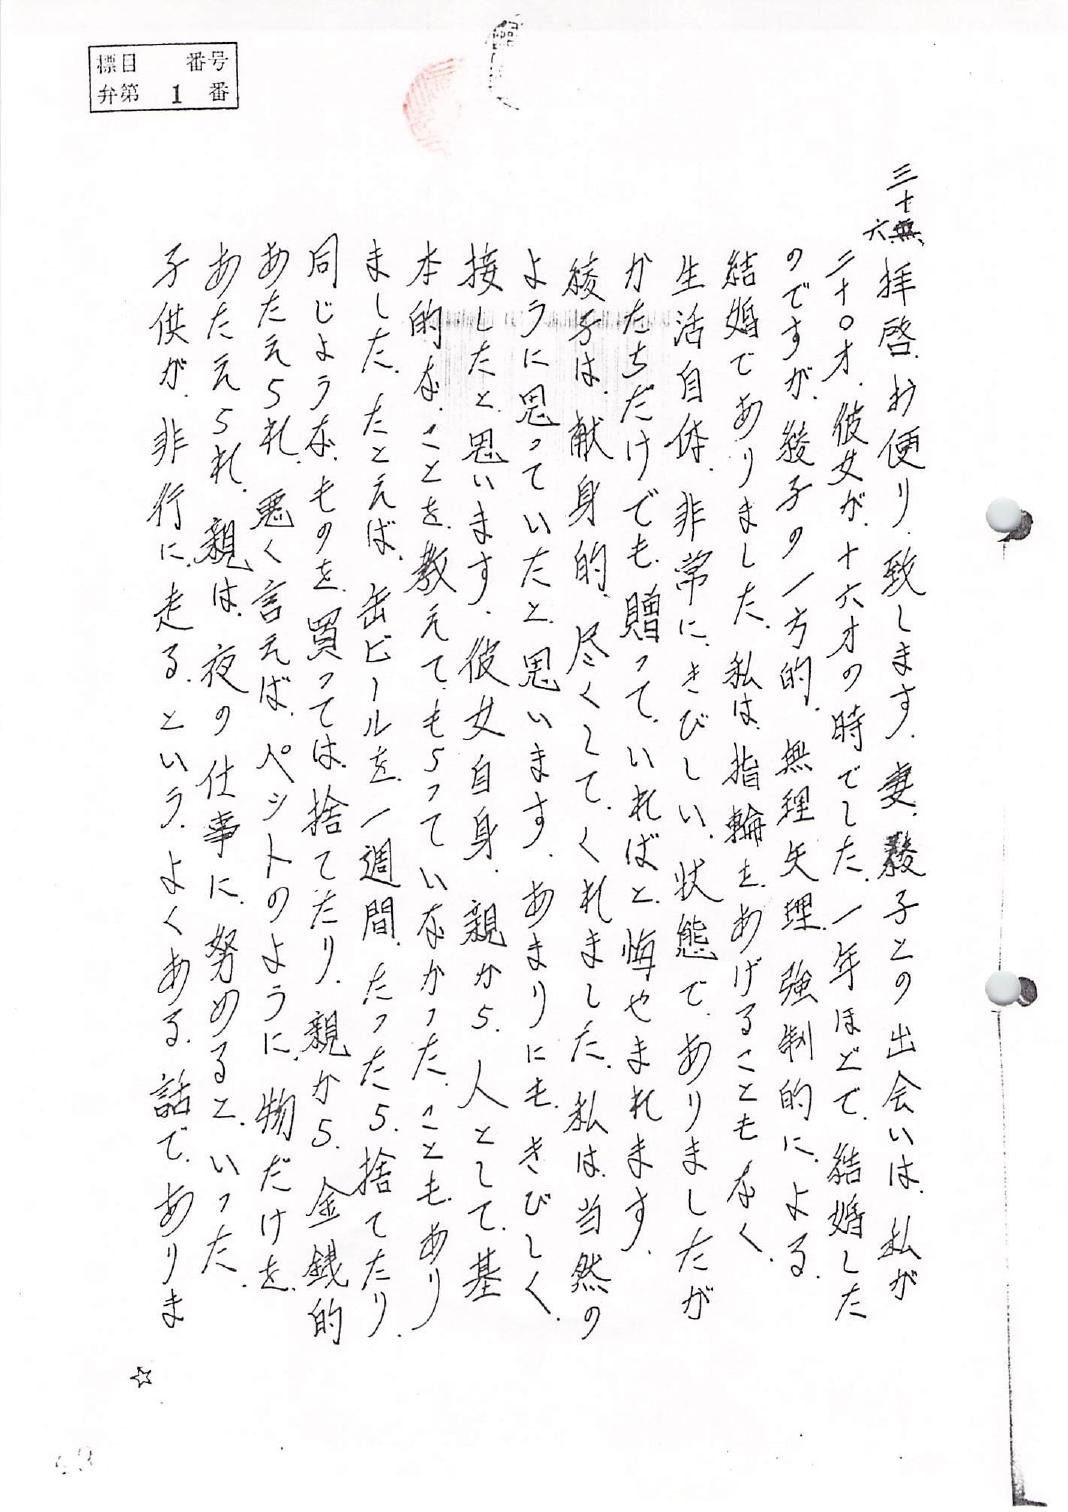 標目 番号
弁第 1 番
三十六
拝啓、お便り、致します。妻、綾子との出会いは、私が
二十〇才、彼女が、十六才の時でした。一年ほどで、結婚した
のですが、綾子の一方的、無理矢理、強制的に、よる、
結婚でありました。私は、指輪を、あげることもなく、
生活自体、非常に、きびしい、状態で、ありましたが
かたちだけでも、贈って、いればと、悔やまれます。
綾子は、献身的、尽くして、くれました。私は、当然の
ように思っていたと、思います。あまりにも、きびしく、
接したと、思います。彼女自身、親から、人として、基
本的な、ことを、教えて、もらっていなかった、ことも、あり
ました。たとえば、缶ビールを、一週間、たったら、捨てたり、
同じような、ものを、買っては、捨てたり、親から、金銭的
あたえられ、悪く言えば、ペットのように、物だけを、
あたえられ、親は、夜の仕事に、努めると、いった、
子供が、非行に、走る、という、よくある、話で、ありま
☆